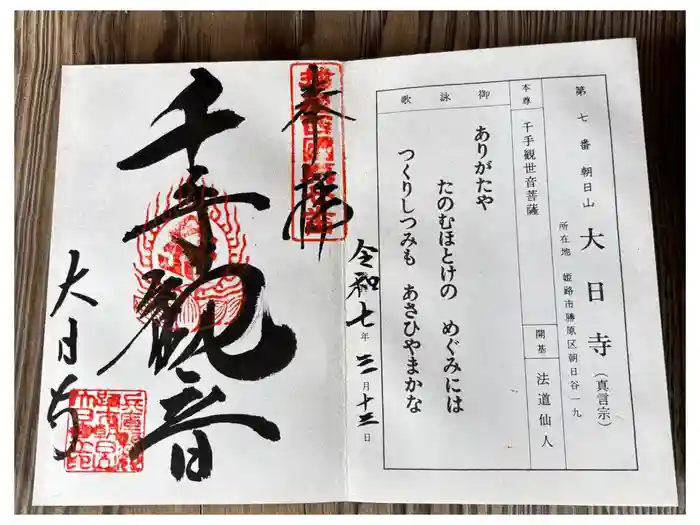 第七番 朝日山 大日寺(真言宗)
所在地 姫路市勝原区朝日谷一九
本尊 千手観世音菩薩
開基 法道仙人
御詠歌
ありがたや
たのむほとけの めぐみには
つくりしつみも あさひやまかな
令和七年三月十三日
奉拝
千手観音
大日寺